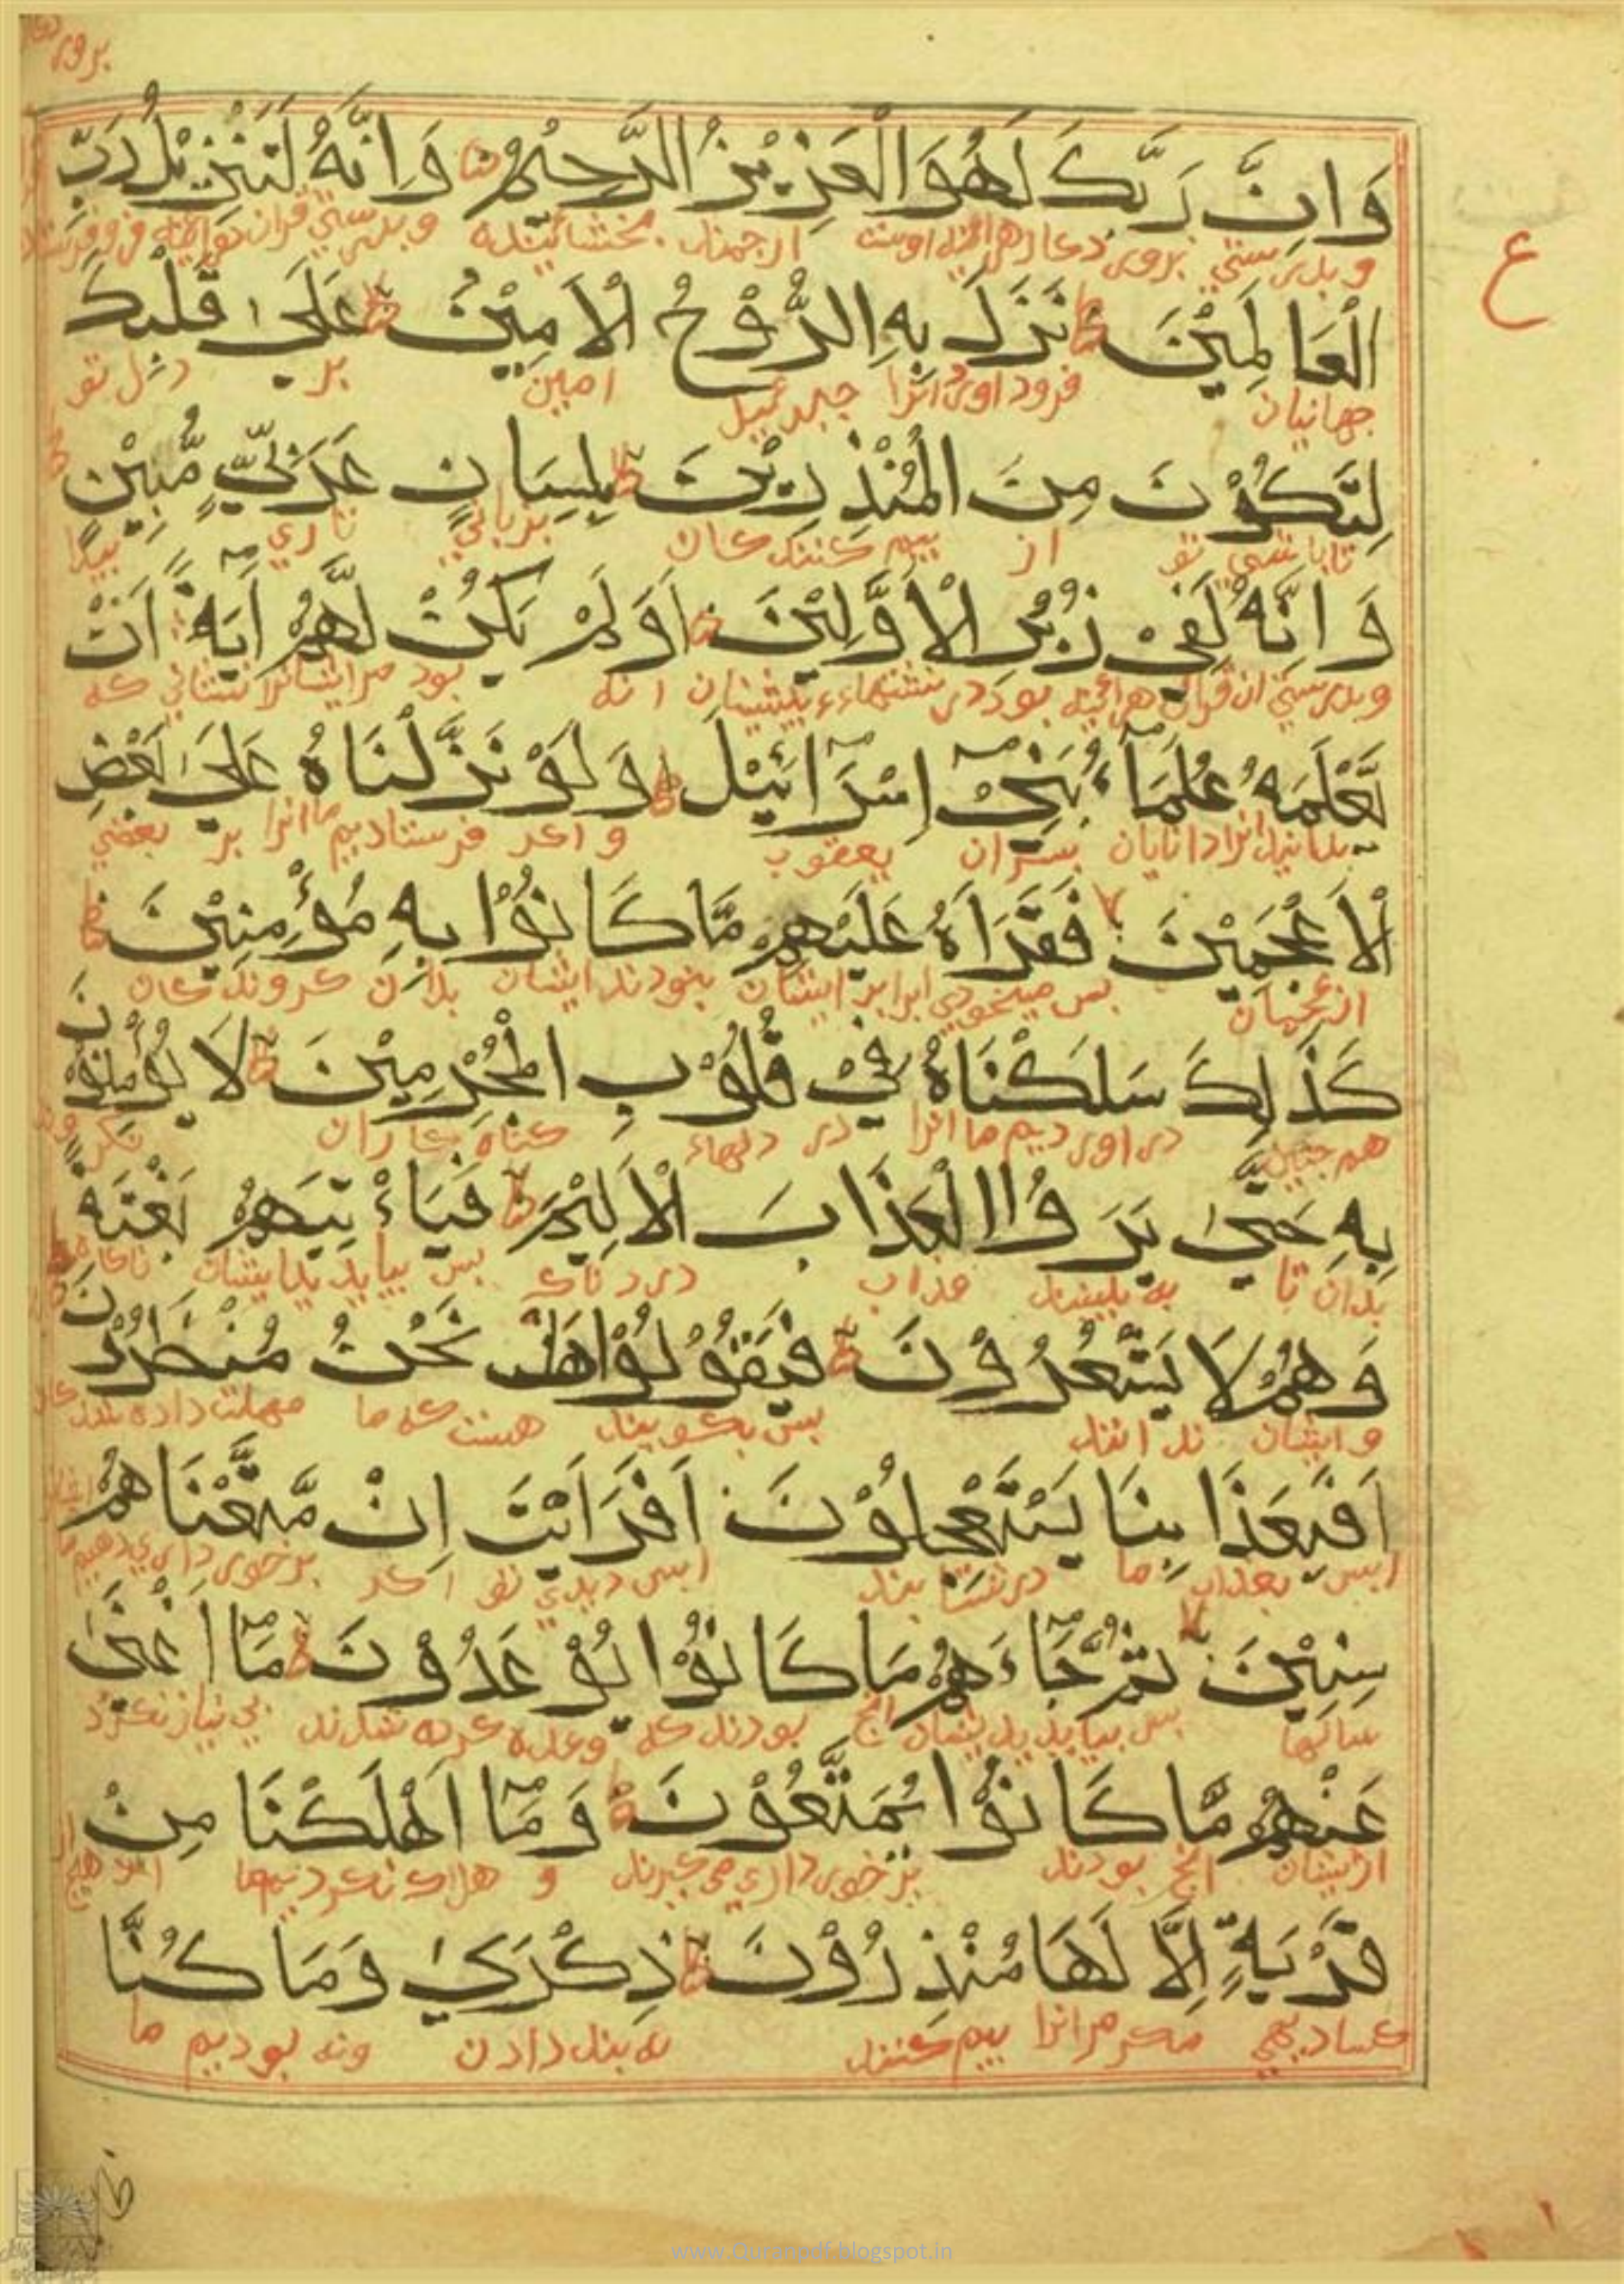 وَاِنَّ رَبَّكَ لَهُوَ الْعَزِيْزُ الرَّحِيْمُ وَاِنَّهُ لَتَنْزِيْلُ رَبِّ
وبدرستي پرورد كار هرآئينه اوست ارجمند بخشائينده وبدرستي قران
الْعَا لَمِيْنَ نَزَلَ بِهِ الرُّوْحُ الْاَمِيْنُ عَلٰى قَلْبِكَ
جهانيان فرود اورد انرا جبرئيل امين بر دل تو
لِتَكُوْنَ مِنَ الْمُنْذِرِيْنَ بِلِسَانٍ عَرَبِيٍّ مُّبِيْنٍ
تا باشي تو از بيم كننده كان بزباني تازي پيدا
وَاِنَّهُ لَفِيْ زُبُرِ الْاَوَّلِيْنَ اَوَلَمْ يَكُنْ لَّهُمْ اٰيَةً اَنْ
وبدرستي ان قران هرآئينه بود در پيشينان انه بود مرايشانرا نشاني كه
يَّعْلَمَهُ عُلَمَاۤءُ بَنِيْۤ اِسْرَاۤئِيْلَ وَلَوْ نَزَّلْنَاهُ عَلٰى بَعْضِ
بدانند انرا دانايان پسران يعقوب و اكر فرستاديم ما انرا بر بعضي
الْاَعْجَمِيْنَ فَقَرَاَهُ عَلَيْهِمْ مَّا كَانُوْا بِهِ مُؤْمِنِيْنَ
از عجميان پس ميخوندي انرا بر ايشان بنودند ايشان بدان كرونده كان
كَذٰلِكَ سَلَكْنَاهُ فِيْ قُلُوْبِ الْمُجْرِمِيْنَ لَا يُؤْمِنُوْنَ
هم چنين در اورديم ما انرا در دلهاء كناه كاران
بِهِ حَتّٰى يَرَوُا الْعَذَابَ الْاَلِيْمَ فَيَاْتِيَهُمْ بَغْتَةً
بدان تا به بينند عذاب دردناك پس بيايد بدايشان ناكاه
وَهُمْ لَا يَشْعُرُوْنَ فَيَقُوْلُوْا هَلْ نَحْنُ مُنْظَرُوْنَ
وايشان ندانند پس بكويند هست كه ما مهلت داده
اَفَبِعَذَابِنَا يَسْتَعْجِلُوْنَ اَفَرَاَيْتَ اِنْ مَّتَّعْنَاهُمْ
اپس بعذاب ما اپس ديدي تو اكر
سِنِيْنَ ثُمَّ جَاۤءَهُمْ مَا كَانُوْا يُوْعَدُوْنَ مَاۤ اَغْنٰى
سالها پس بيايد انچ بودند كه وعده كرده شدند بي نياز نكرد
عَنْهُمْ مَّا كَانُوْا يُمَتَّعُوْنَ وَمَاۤ اَهْلَكْنَا مِنْ
ازيشان انچ بودند و هلاك نكرديم ما
قَرْيَةٍ اِلَّا لَهَا مُنْذِرُوْنَ ذِكْرٰى وَمَا كُنَّا
مكر مر انرا بيم كننده دادن ونه بوديم ما
ع
www.Quranpdf.blogspot.in